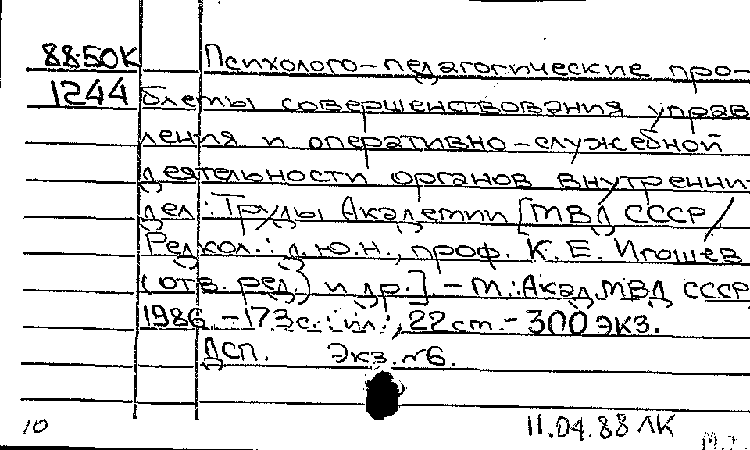 88.50К Психолого-педагогические про-
1244 блемы совершенствования управ
ления и оперативно-служебной
деятельности органов внутренних
дел: Труды Академии [МВД СССР /
Редкол.: д.ю.н., проф. К. Е. Игошев
(отв. ред.) и др.] - М.: Акад. МВД СССР,
1986. - 173 с.: ил., 22 см. - 300 экз.
ДСП. Экз. №6.
10 11.04.88 ЛК